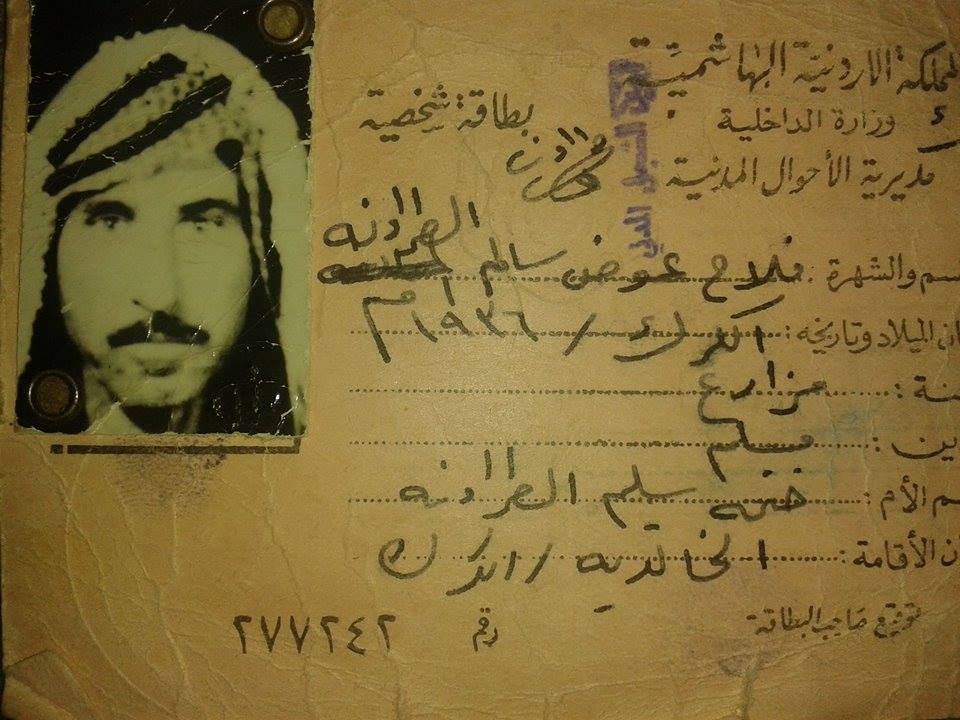 المملكة الاردنية الهاشمية
وزارة الداخلية
مديرية الأحوال المدنية
بطاقة شخصية
الطراونه
سم والشهرة : فلاح عوض سالم
ان الميلاد وتاريخه : الكرك / ١٩٣٦ م
نة : مزارع
ين : مسلم
سم الأم : سليم الطراونه
ن الأقامة : الخالديه / الكرك
توقيع صاحب البطاقة
رقم ٢٧٧٢٤٢